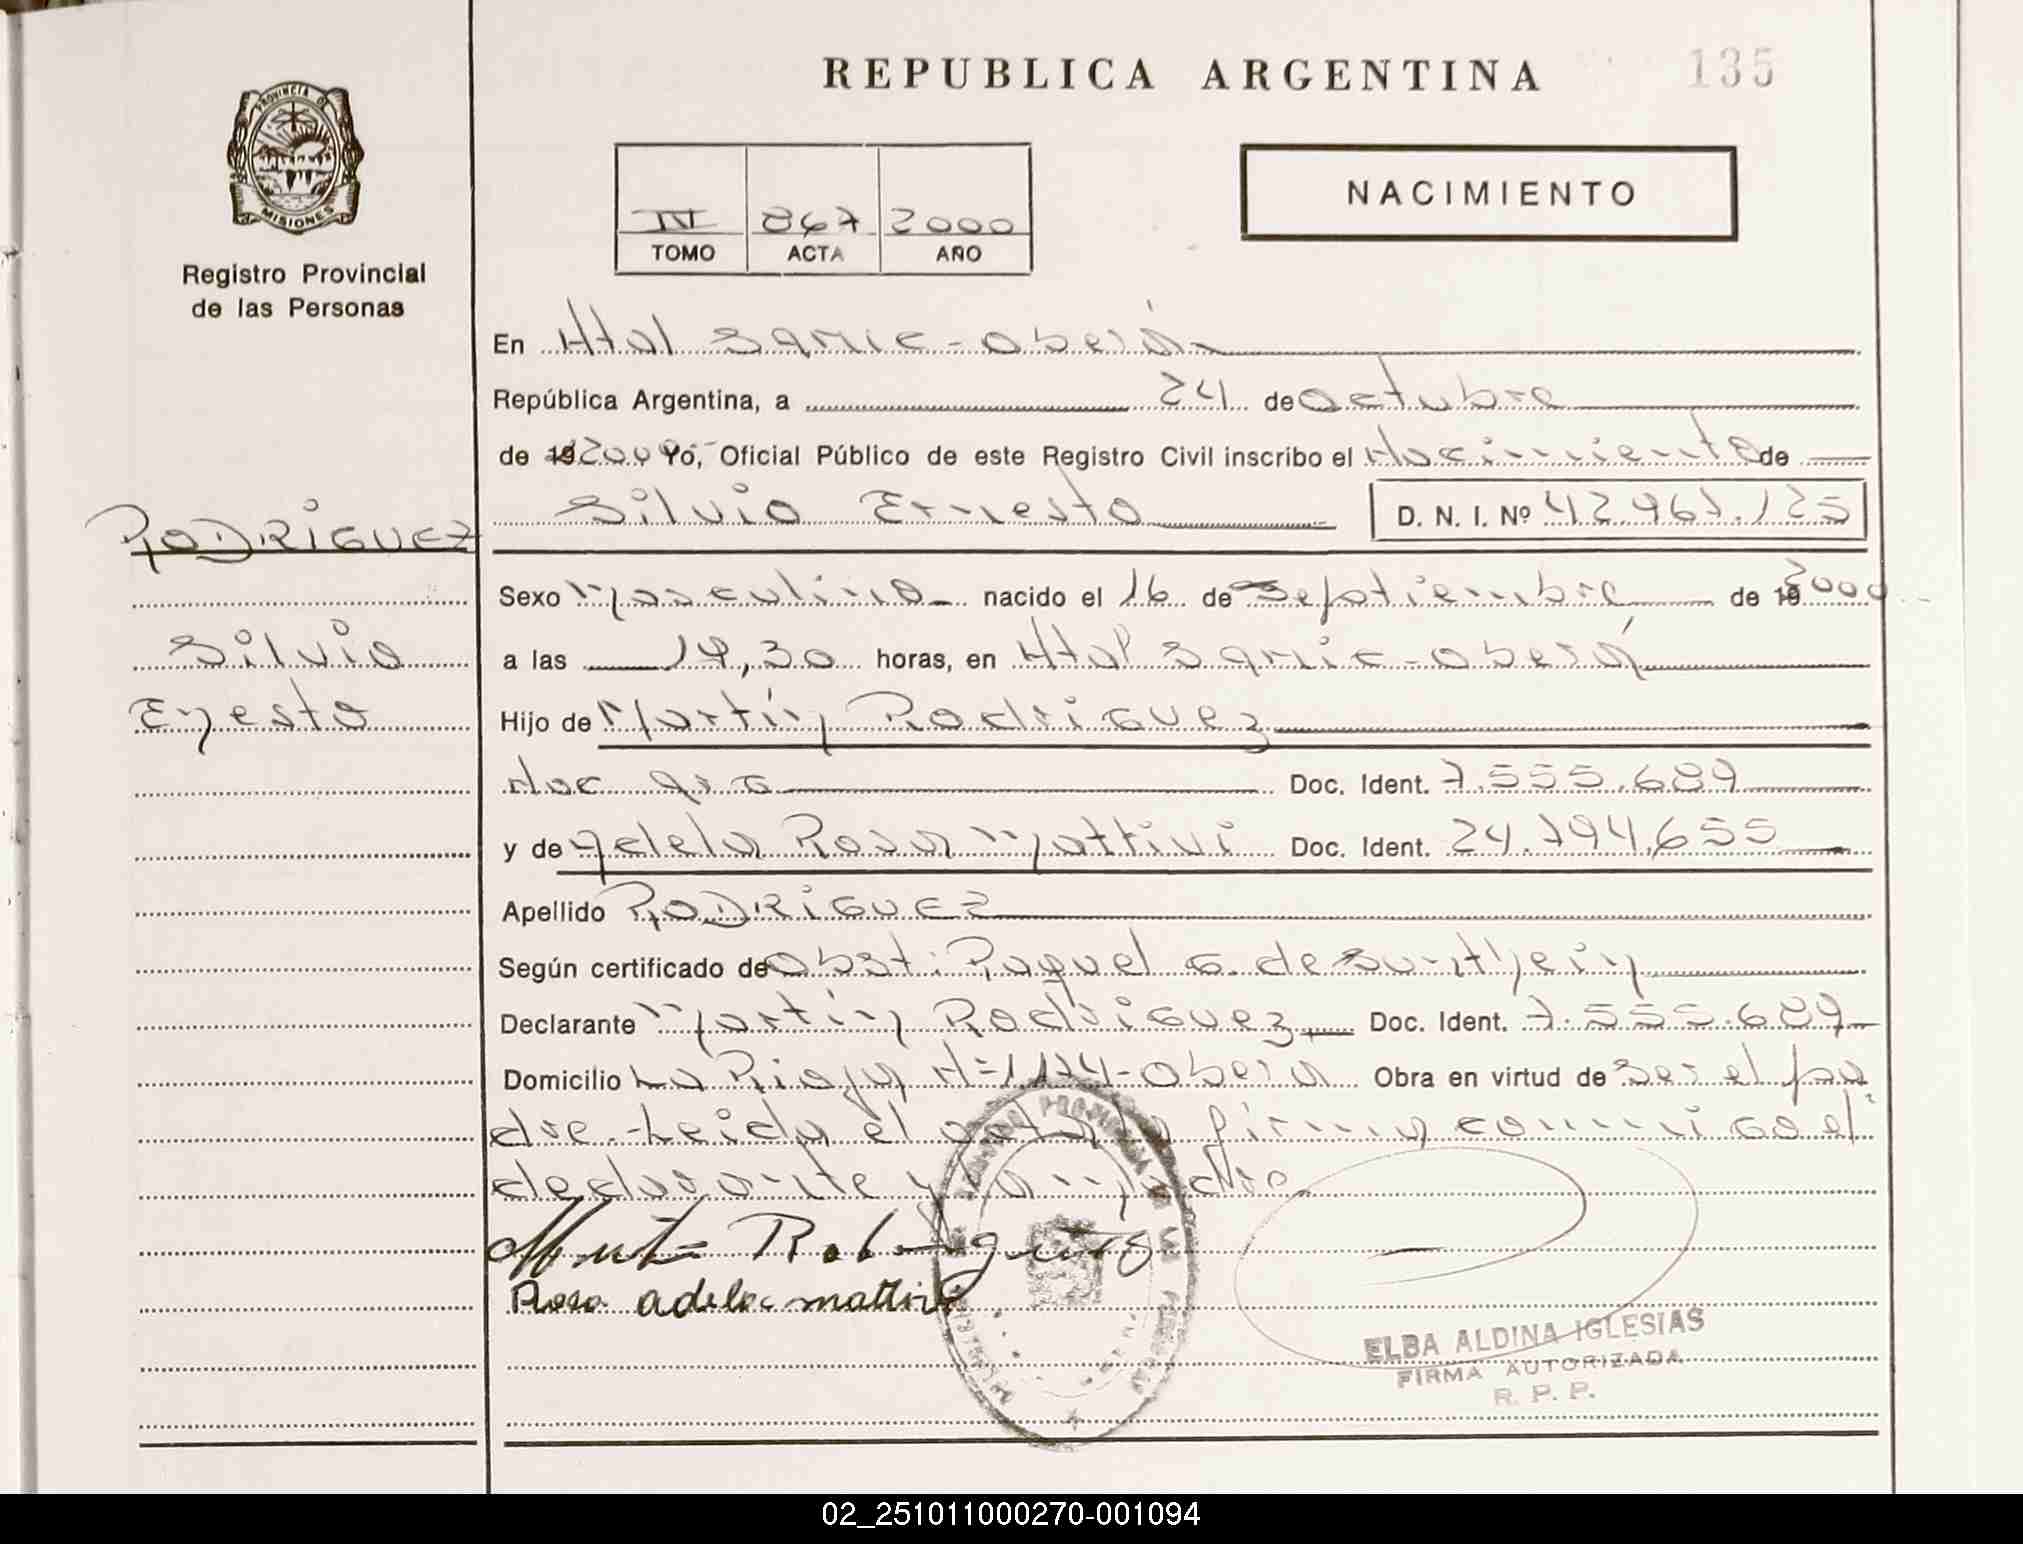 REPUBLICA ARGENTINA
135
PROVINCIA DE
MISIONES
Registro Provincial
de las Personas
IV 867 2000
TOMO ACTA AÑO
NACIMIENTO
En Htal Samic - Oberá
República Argentina, a 24 de octubre
de 19 2000 Yo, Oficial Público de este Registro Civil inscribo el Nacimiento de
RODRIGUEZ
Silvio Ernesto
Silvio Ernesto D. N. I. Nº 42.967.125
Sexo Masculino nacido el 16 de Septiembre de 19 2000
a las 14,30 horas, en Htal Samic - Oberá
Hijo de Martín Rodriguez
Nac. arg Doc. Ident. 7.555.689
y de Adela Rosa Mattivi Doc. Ident. 24.794.655
Apellido RODRIGUEZ
Según certificado de Obst: Raquel G. de
Declarante Martín Rodriguez Doc. Ident. 7.555.689
Domicilio La Rioja Nº 1174 - Oberá Obra en virtud de ser el pa
dre. Leida el acta la firman conmigo el
declarante y la madre
Rosa adela mattivi
ELBA ALDINA IGLESIAS
FIRMA AUTORIZADA
R. P. P.
02_251011000270-001094